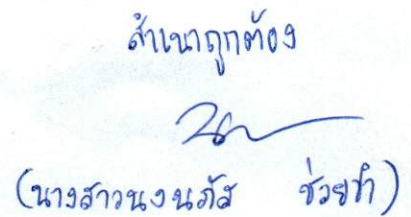 สำเนาถูกต้อง
(นางสาวนงนภัส ช่วยชำ)